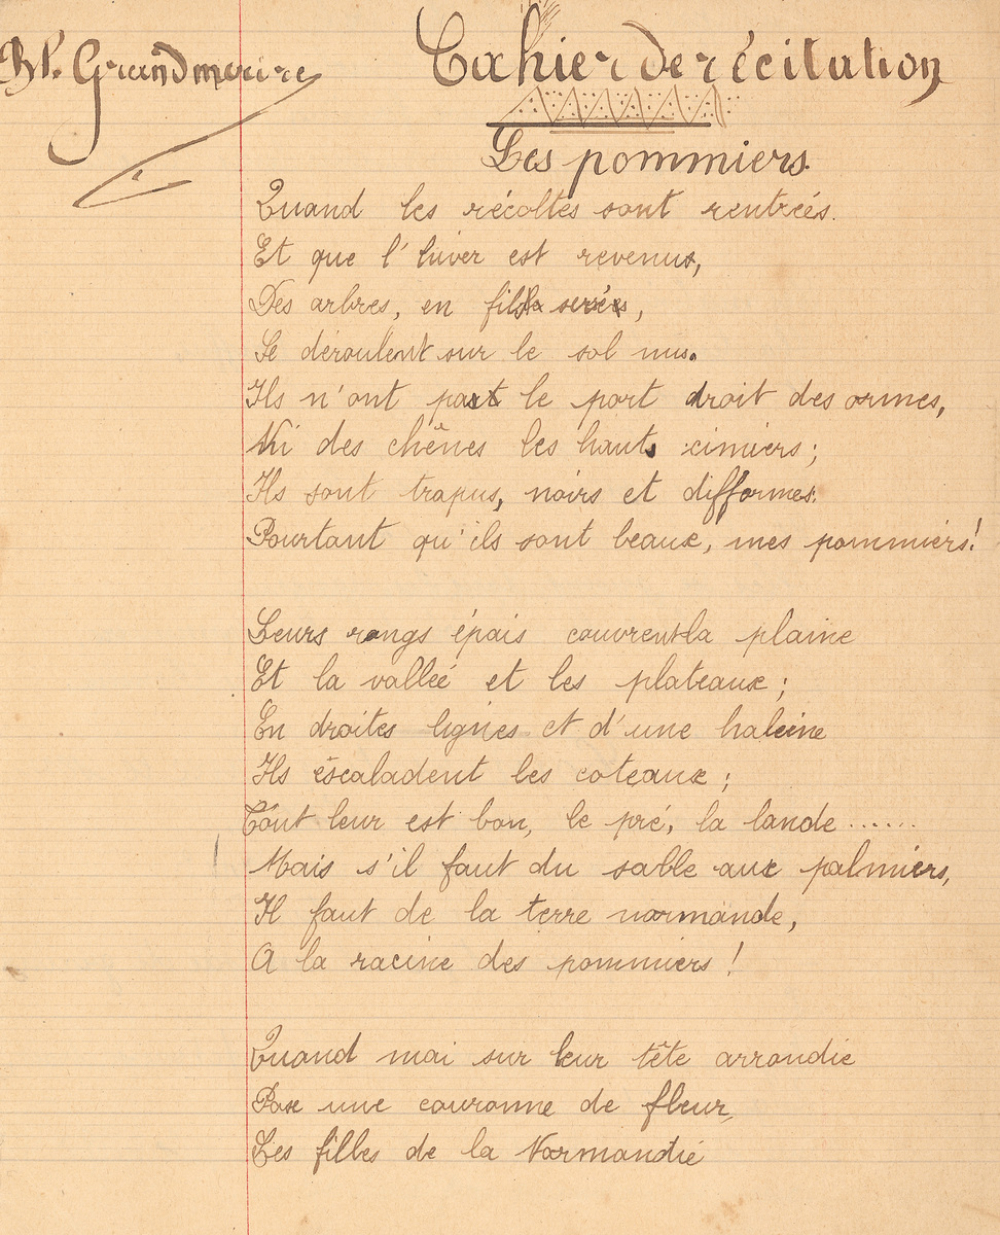 Bl. Grandmaire
Cahier de récitation
Les pommiers.
Quand les récoltes sont rentrées.
Et que l'hiver est revenus,
Des arbres, en file serrées,
Se déroulent sur le sol nus.
Ils n'ont part le port droit des ormes,
Ni des chênes les hauts cimiers;
Ils sont trapus, noirs et difformes.
Pourtant qu'ils sont beaux, mes pommiers!
Leurs rangs épais couvrent la plaine
Et la vallée et les plateaux;
En droites lignes et d'une haleine
Ils éscaladent les coteaux;
Tout leur est bon, le pré, la lande ......
Mais s'il faut du sable aux palmiers,
Il faut de la terre normande,
A la racine des pommiers!
Quand mai sur leur tête arrondie
Pose une couronne de fleur,
Les filles de la Normandie